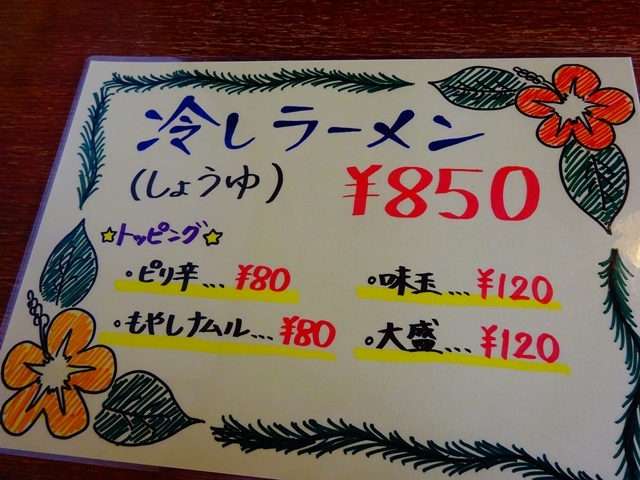 冷しラーメン
(しょうゆ) ¥850
☆トッピング☆
。ピリ辛... ¥80
。味玉... ¥120
。もやしナムル... ¥80
。大盛... ¥120